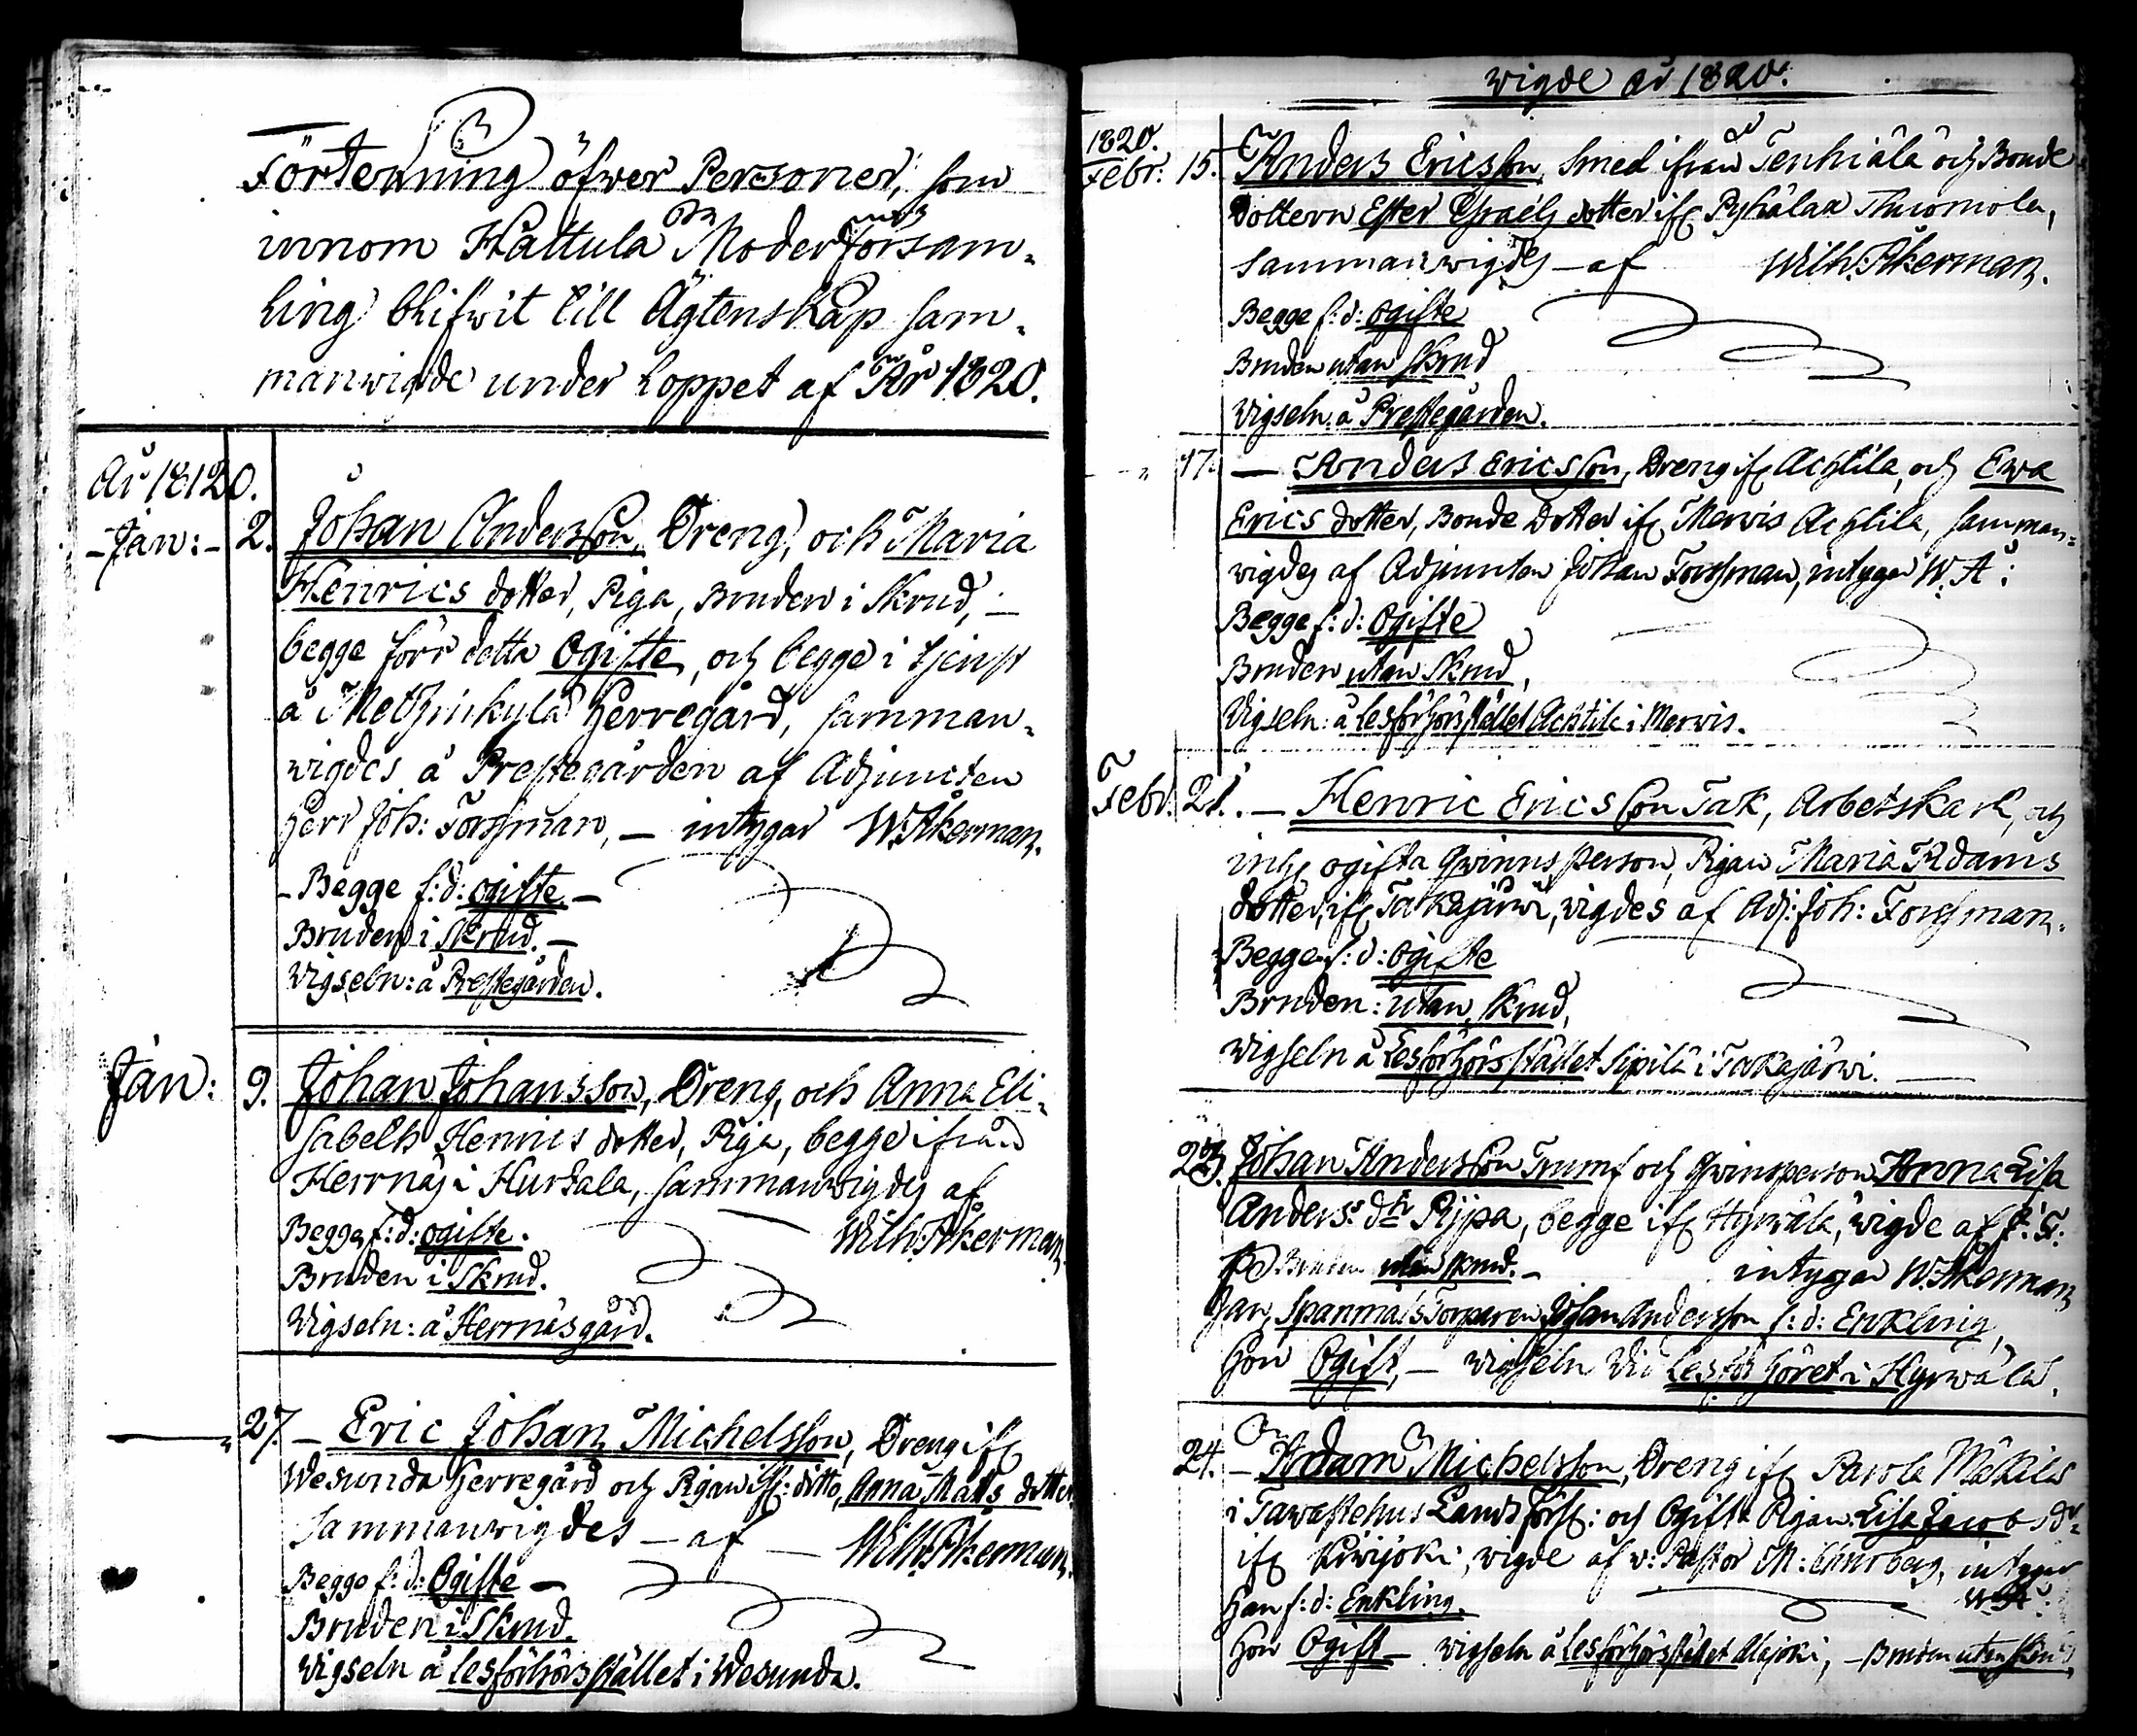 Förtekning öfwer Personer, som
innom Hattula Moderförsam-
ling blifwit till Ägtenskap sam-
manwigde under Loppet af År 1820.
År 1820.
Jan: 2. Johan Andersson, Dreng, och Maria
Henrics dotter, Piga, Bruden i Skrud,
begge förr detta Ogifte, och begge i tjenst
å Metzinkylä Herregård, samman-
wigdes å Prestegården af Adjuncten
Herr Joh: Forssman, — intygar W. Åkerman.
- Begge f: d: ogifte -
Bruden i Skrud. —
Vigseln: å Prestegården.
Jan: 9. Johan Johansson, Dreng, och Anna Eli-
sabeth Henrics dotter, Piga, begge ifrån
Herrnäs i Hurtala, sammanwigdes af
Wilh: Åkerman.
Begge f: d: ogifte.
Bruden i Skrud.
Vigseln: å Herrnäs gård.
27. — Eric Johan Michelsson, Dreng ifr
Wesunda Herregård och Pigan ifr: ditto, Anna Matts dotter
Sammanwigdes — af — Wilh: Åkerman.
Begge f: d: Ogifte —
Bruden i Skrud.
Vigseln å Lesförhörs stället i Wesunda.
wigde år 1820.
1820.
Febr: 15. Anders Ericsson, Smed ifrån Tenhiälä och Bonde
dottern Ester Israels dotter ifr Pyhälax
sammanwigdes — af Wilh: Åkerman.
Begge f: d: ogifte
Bruden utan Skrud
Vigseln å Prestegården.
17. — Anders Ericsson, Dreng ifr Achtila, och Ewa
Erics dotter, Bonde dotter ifr Merwis Achtila, samman-
wigdes af Adjuncten Johan Forssman, intygar W. Å:
Begge f: d: Ogifte
Bruden utan Skrud,
Vigseln: å Lesförhörs stället Achtila i Merwis.
Febr. 21. — Henric Ericsson Tak, Arbetskarl, och
ogifta Qwinns person, Pigan Maria Adams
dotter, ifr Takajärwi, wigdes af Adj: Joh: Forssman.
Begge f: d: ogifte
Bruden: utan Skrud,
Wigseln å Lesförhörs stället Sipilä i Takajärwi.
23. Johan Andersson Trumf och Qwinsperson Anna Lisa
Anders: dtr Ripa, begge ifr Hyrwälä, wigde af J: F:
Bruden utan skrud. — intygar W. Åkerman
Han, Spanmåls Torparen Johan Andersson f: d: Enkling,
Hon Ogift, — wigseln vid Lesförhöret i Hyrwälä.
24. — Adam Michelsson, Dreng ifr Parola Mäkilä
i Tawastehus Lands förs: och Ogifta Pigan Lisa Jacobs dr
ifr wigde af v: Pastor M: intygar
W. Å:
Han f: d: Enkling.
Hon Ogift — wigseln å Lesförhörs stället Alajoki, — Bruden utan Skrud,